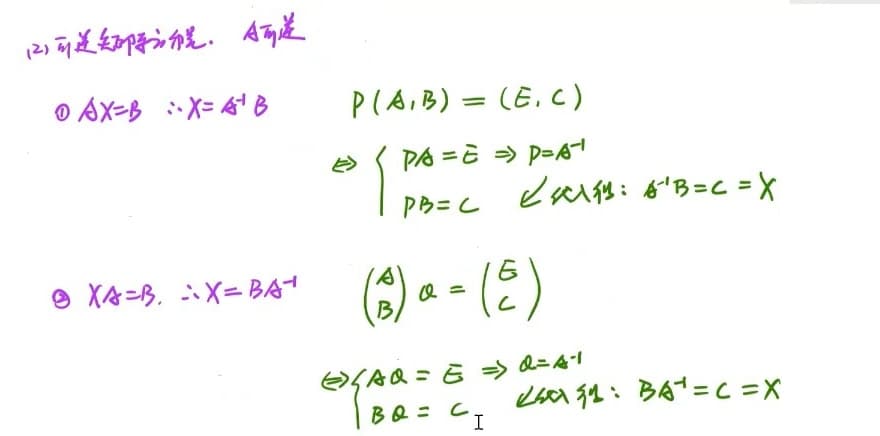 (2) 可逆矩阵方程. A可逆
① AX=B ∴X=A⁻¹B P(A,B)=(E,C)
⇔ { PA=E ⇒ P=A⁻¹
PB=C ↙代入得: A⁻¹B=C=X
② XA=B, ∴X=BA⁻¹ (A B) Q = (E C)
⇔ { AQ=E ⇒ Q=A⁻¹
BQ=C ↙代入得: BA⁻¹=C=X